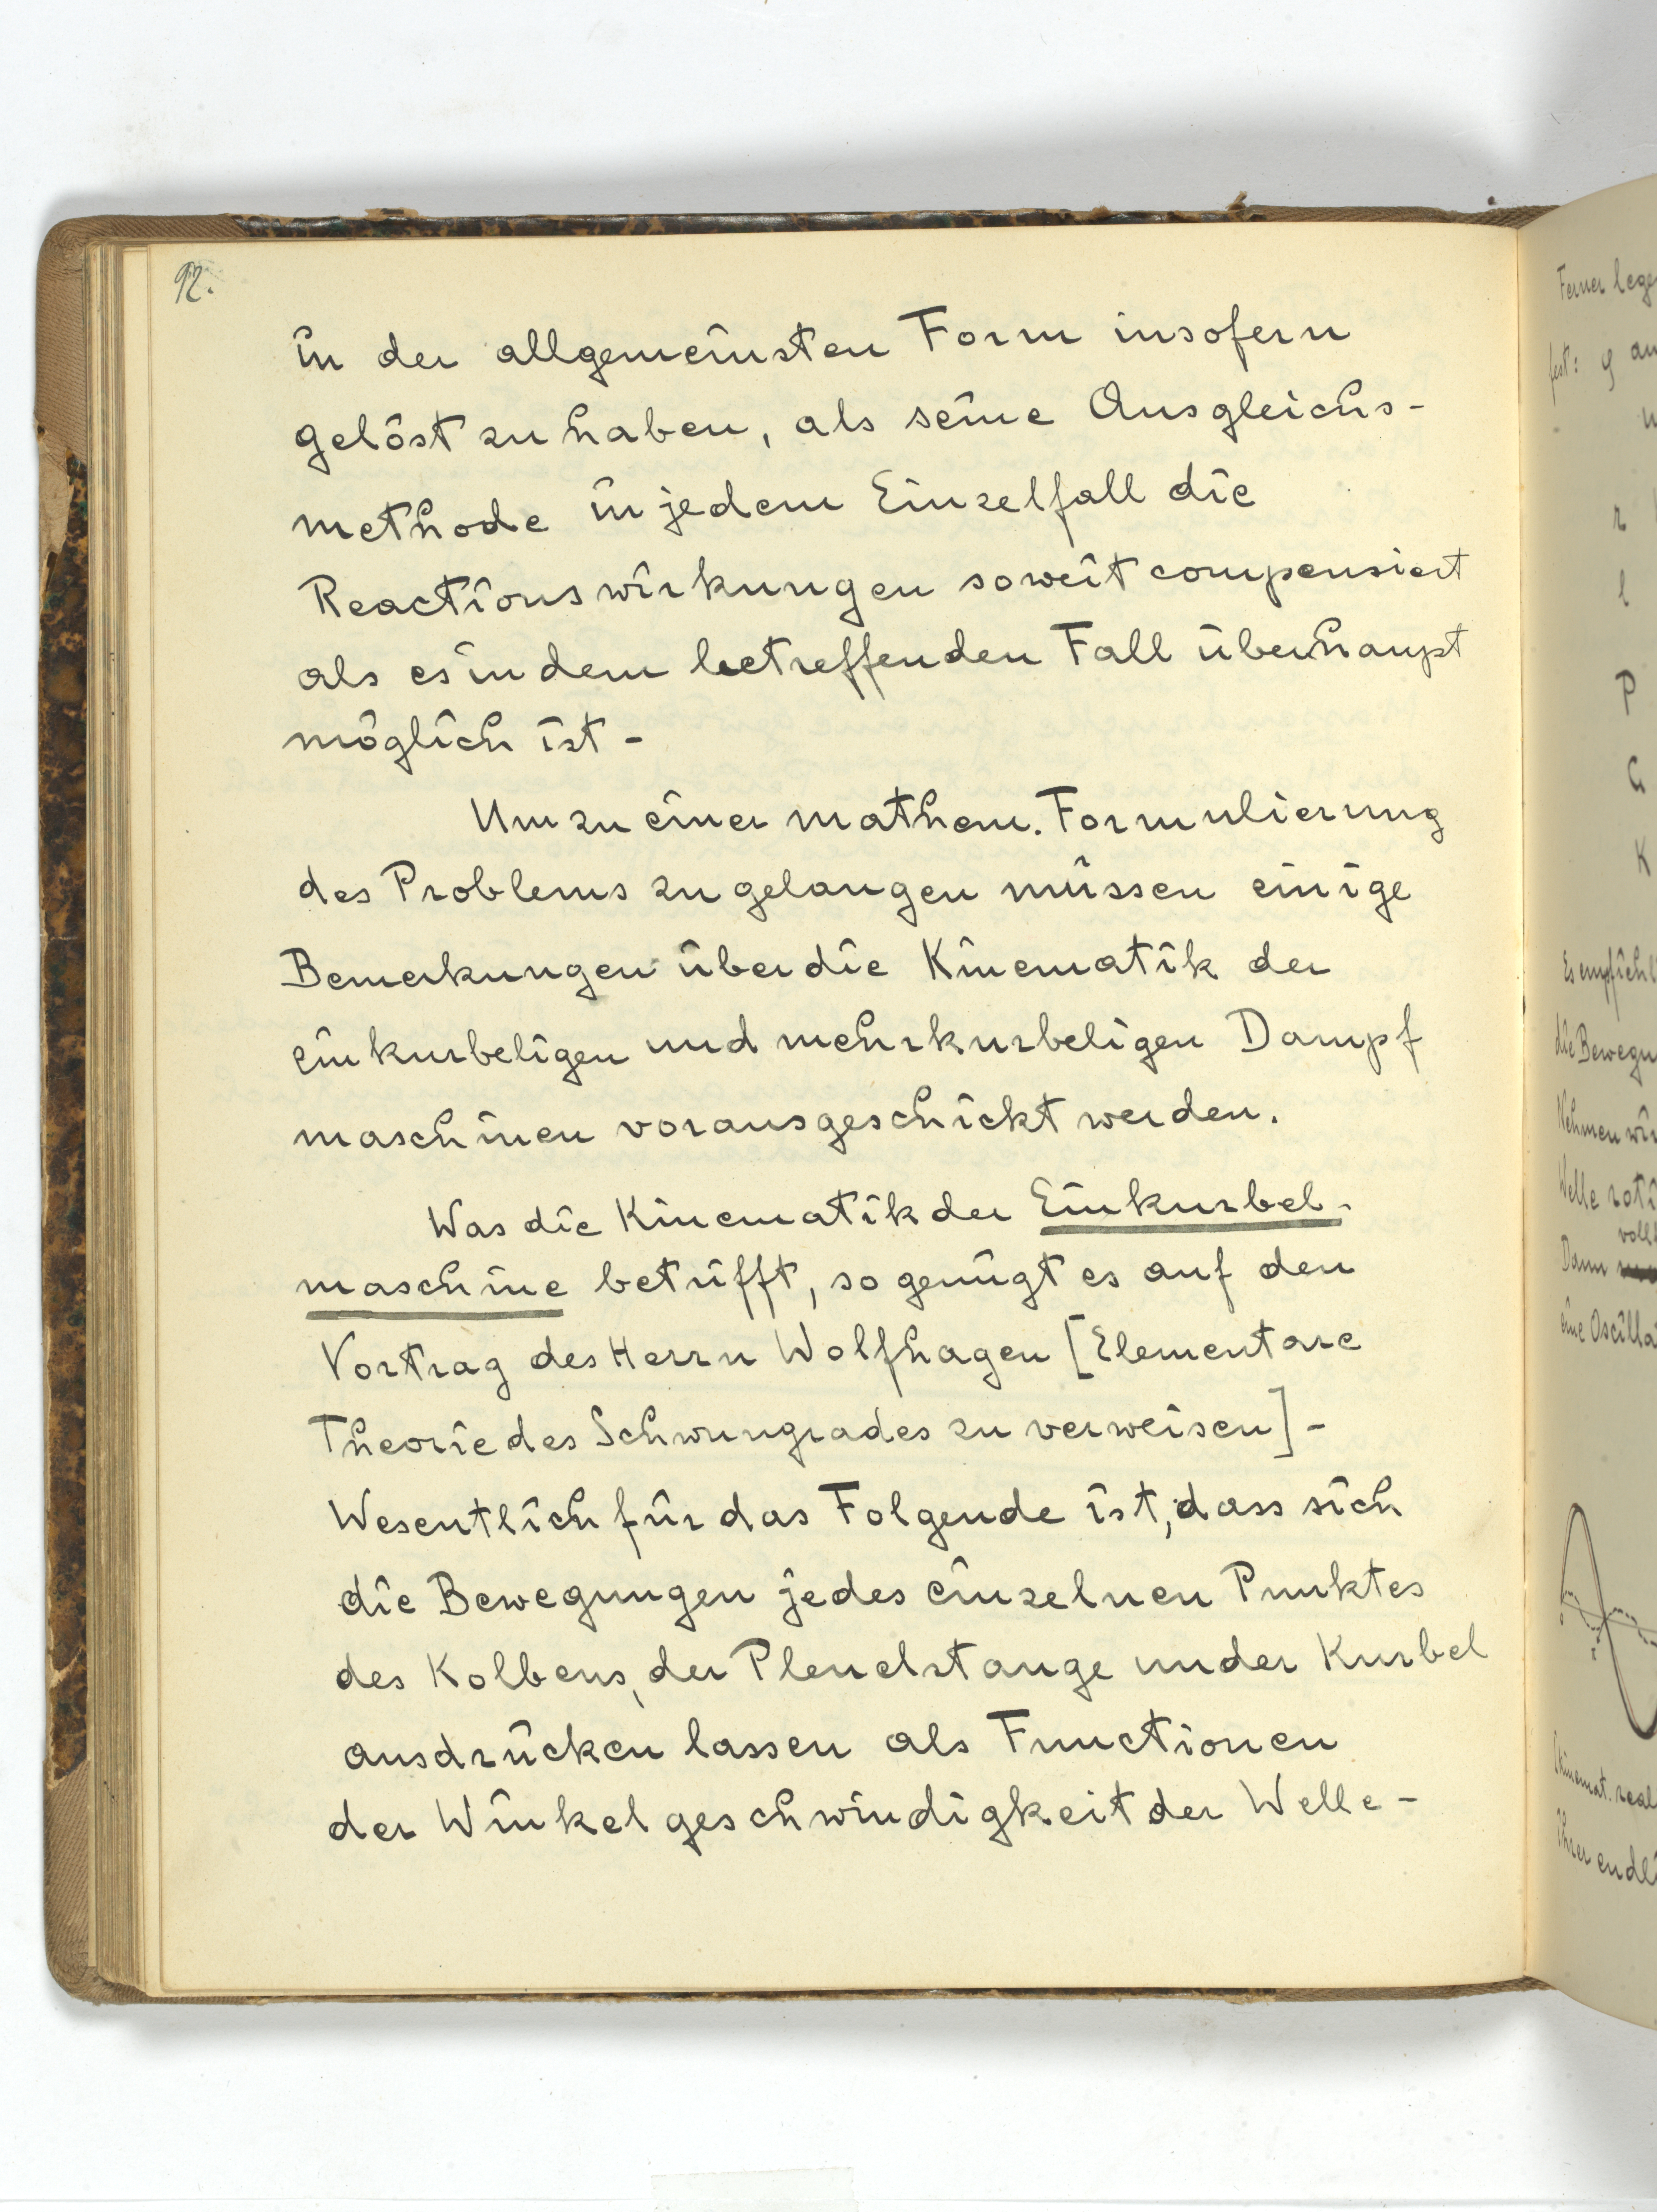 92.
in der allgemeinsten Form insofern
gelöst zu haben, als seine Ausgleichs-
methode in jedem Einzelfall die
Reactionswirkungen soweit compensiert
als es in dem betreffenden Fall überhaupt
möglich ist -
Um zu einer mathem. Formulierung
des Problems zu gelangen müssen einige
Bemerkungen über die Kinematik der
einkurbeligen und mehrkurbeligen Dampf
maschinen vorausgeschickt werden.
Was die Kinematik der Einkurbel-
maschine betrifft, so genügt es auf den
Vortrag des Herrn Wolfhagen [Elementare
Theorie des Schwungrades zu verweisen] -
Wesentlich für das Folgende ist, dass sich
die Bewegungen jedes einzelnen Punktes
des Kolbens, der Pleuelstange under Kurbel
ausdrücken lassen als Functionen
der Winkelgeschwindigkeit der Welle -
Ferner
fest: φ
r
l
P
G
K
die
Nehmen
Welle
Dann
eine